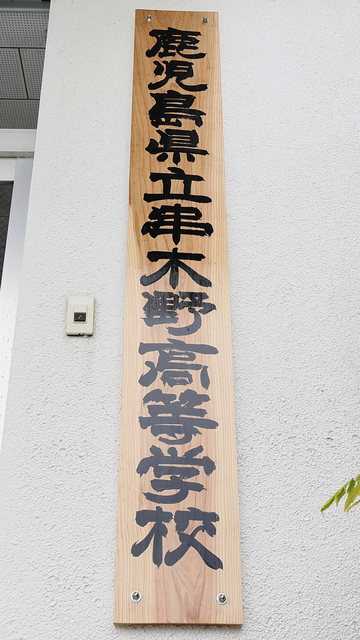 鹿児島県立串木野高等学校